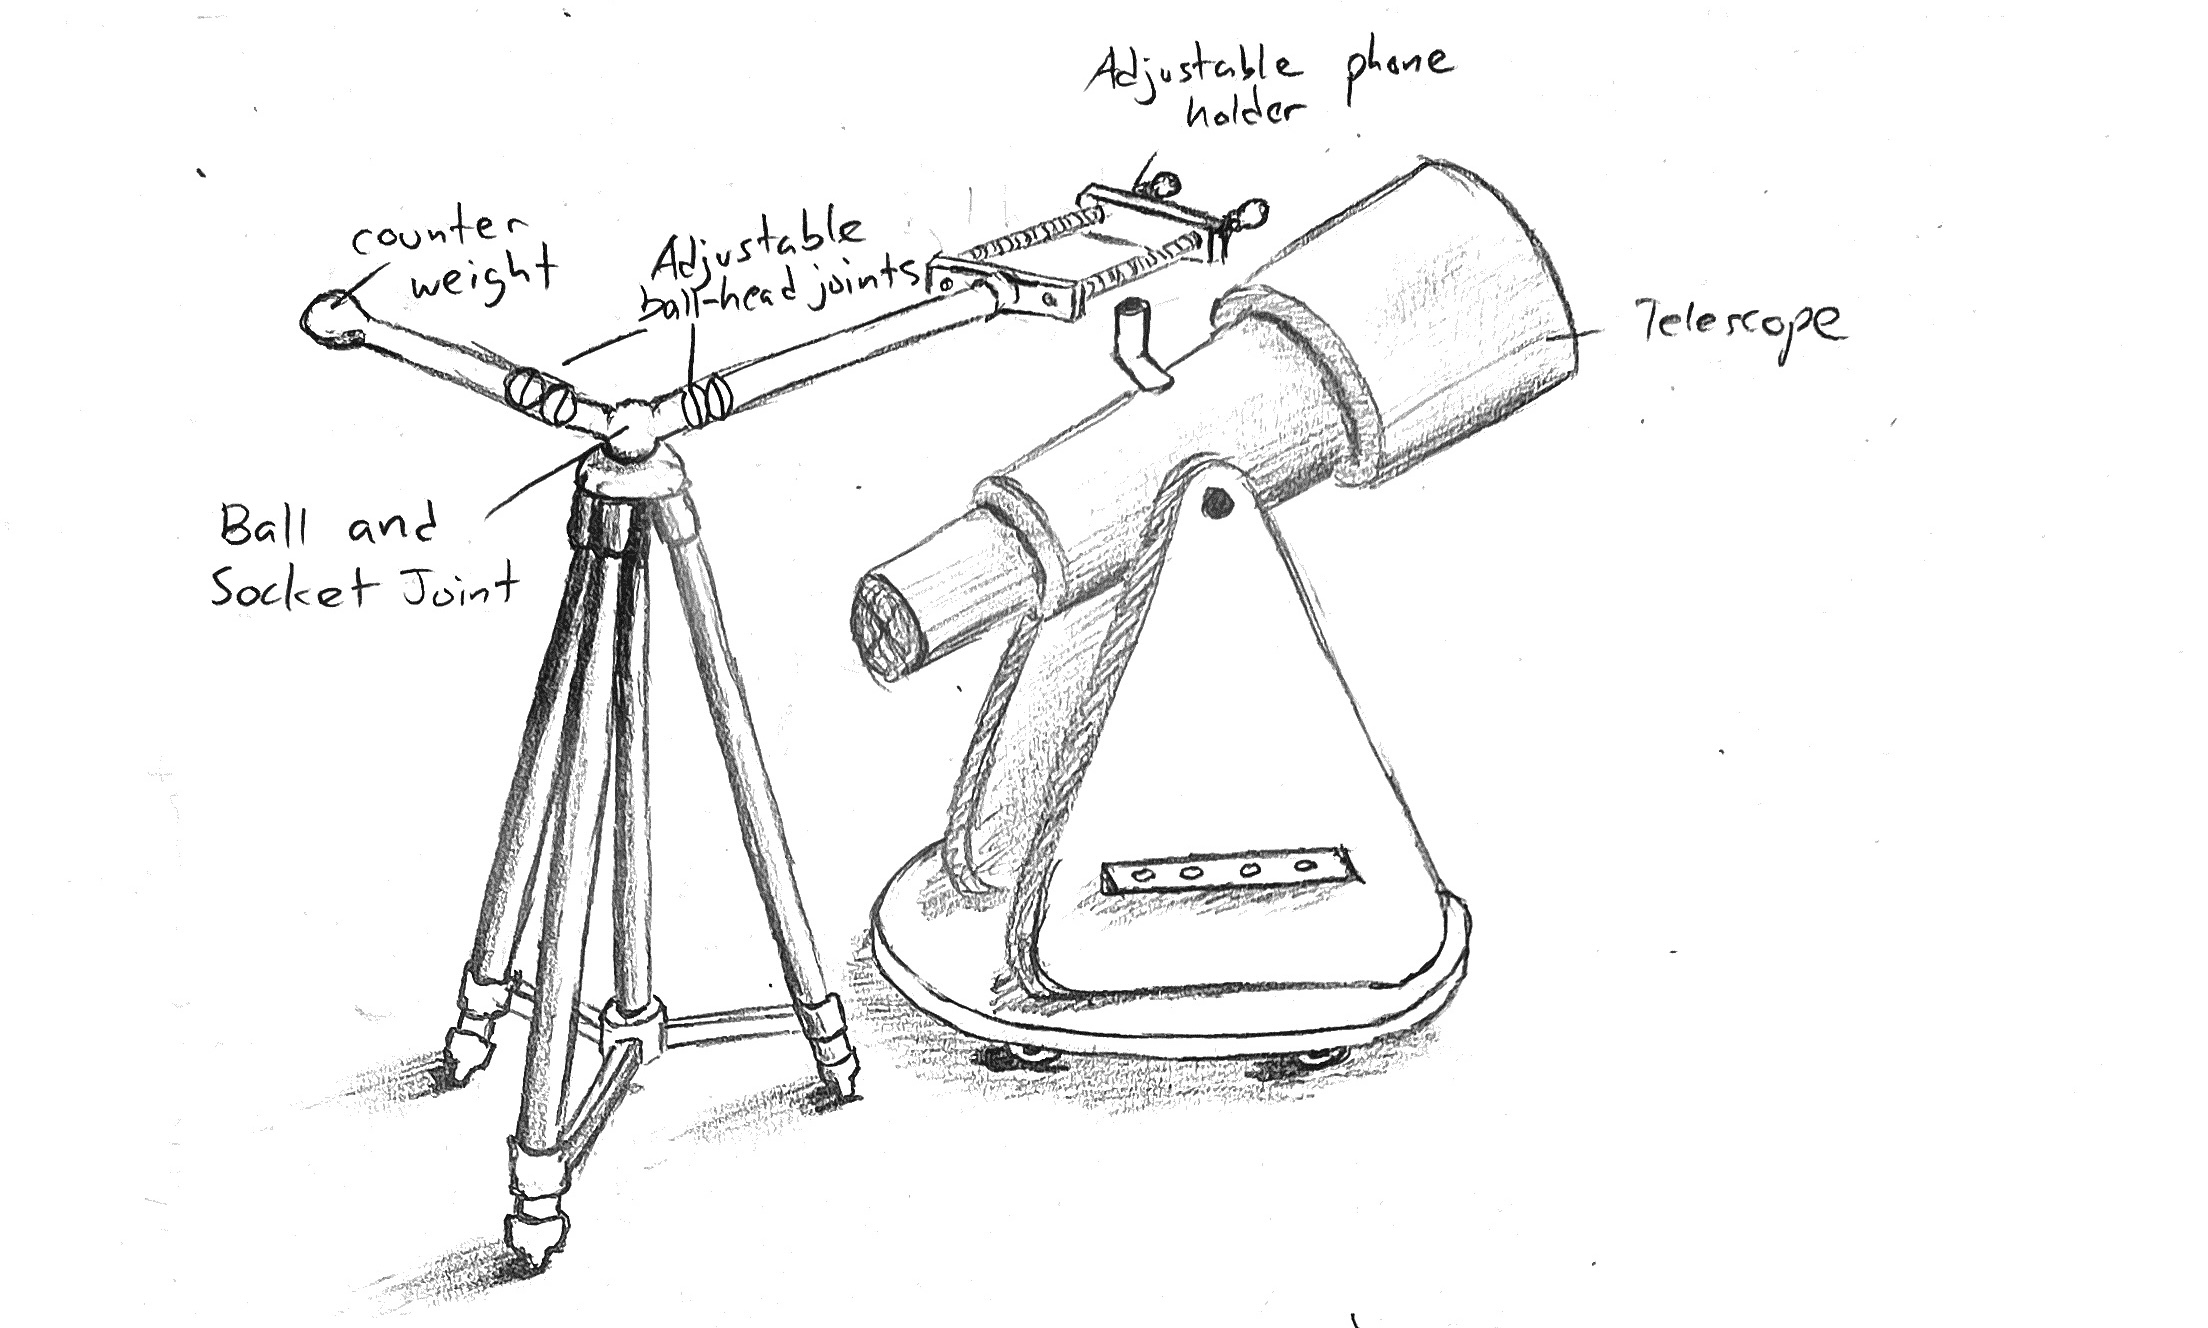 Adjustable phone
holder
counter
weight
Adjustable
ball-head joints
Telescope
Ball and
Socket Joint